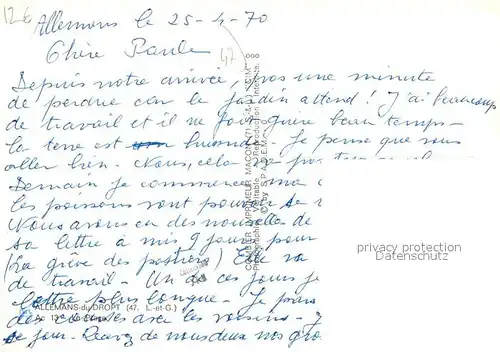 126
Allemans le 25-4-70
47
Chère Paule
Depuis notre arrivée, pas une minute
de perdue car le jardin attend ! J'ai beaucoup
de travail et il ne fait guère beau temps -
la terre est humide. Je pense que vous
allez bien. Nous, cela va
Demain je commence ma
les poissons vont pouvoir
Nous avons eu des nouvelles de
sa lettre a mis 9 jours pour
(La grève des postiers) Elle va
de travail - Un de ces jours je
lettre plus longue - Je
des courses avec les voisins -
jour. Recevez de nous deux nos gro
ALLEMANS-du-DROPT (47. L.-et-G.)
COMBIER IMPRIMEUR MACON
Photographie Véritable Reproduction Interdite
privacy protection
Datenschutz